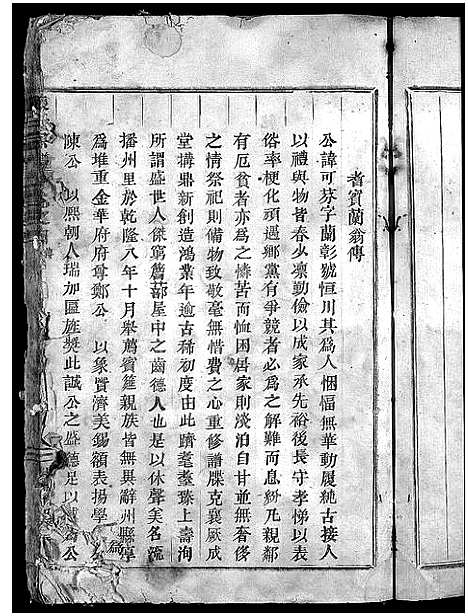 耆賓蘭翁傳
公諱可芬字蘭彰號恒川其為人悃愊無華動履純古接人
以禮與物皆春少稟勤儉以成家承先裕後長守孝悌以表
俗率梗化頑遇鄉黨有爭競者必為之解難而息紛凡親鄰
有厄貧者亦為之憐苦而恤困居家則淡泊自甘並無奢侈
之情祭祀則備物致敬毫無惜費之心重修譜牒克襄厥成
堂搆鼎新創造鴻業年逾古稀初度由此躋耄耋臻上壽洵
所謂盛世人傑窮簷蔀屋中之齒德人也是以休聲美名流
播州里於乾隆八年十月舉薦賓筵親族皆無異辭州縣亭
為堆重金華府府尊鄭公 以象賢濟美錫額表揚學
陳公 以熙朝人瑞加匾旌獎此誠公之盛德足以 為公